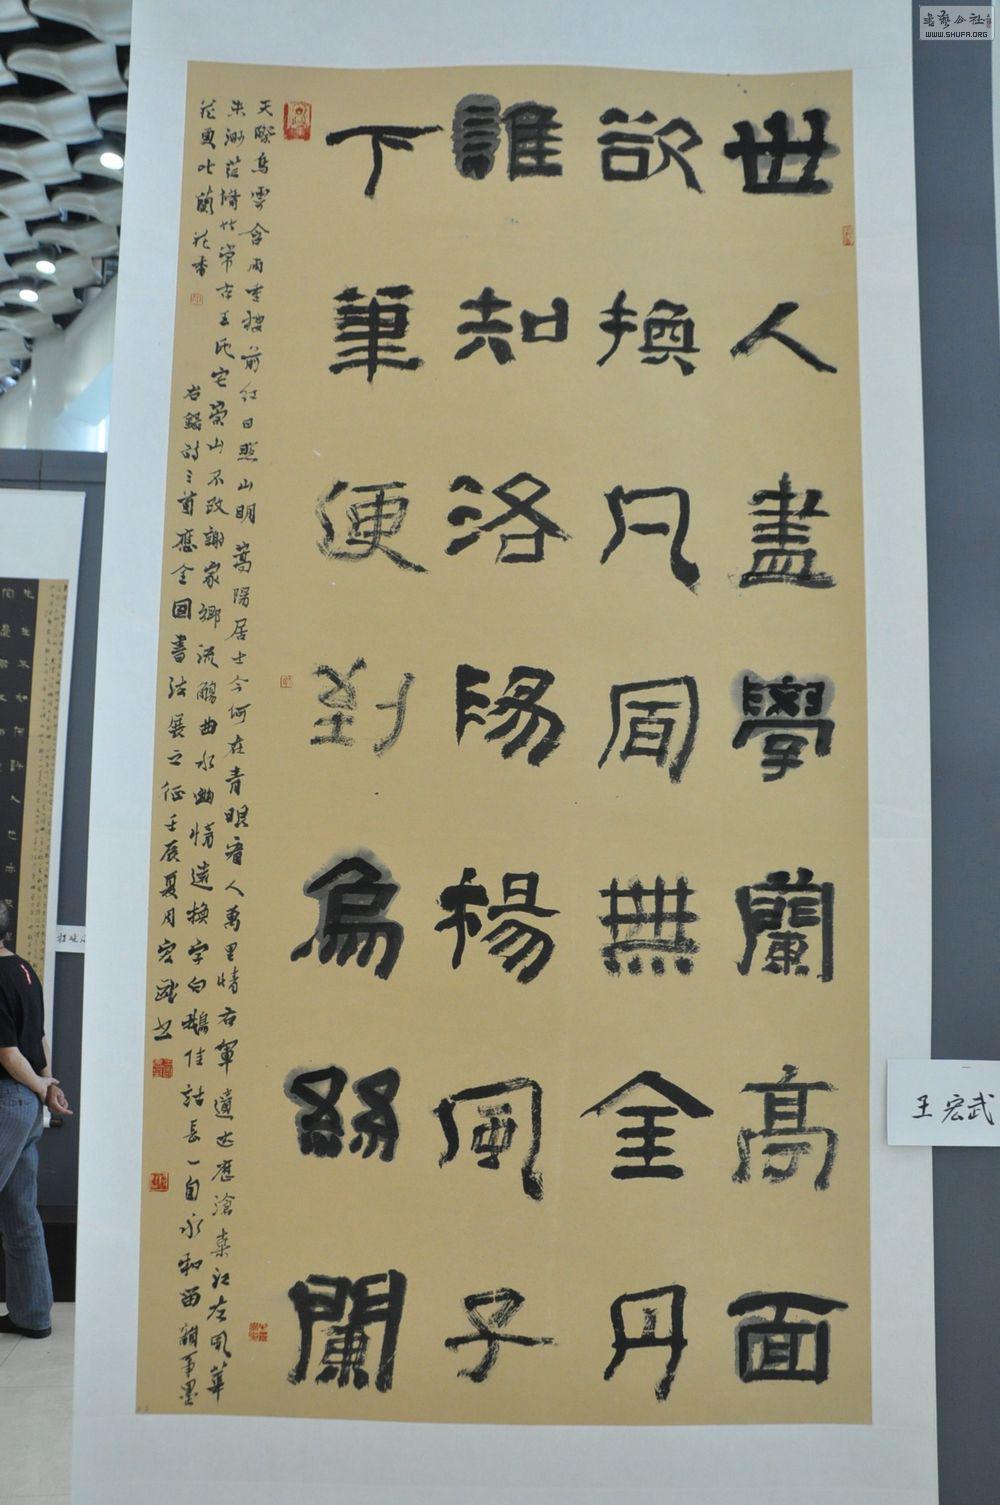 世人盡學蘭高面
欲換凡骨無金丹
誰知洛陽楊風子
下筆便到烏絲闌
天際烏雲含雨重樓前紅日照山明嵩陽居士今何在青眼看人萬里情右軍遺迹歷滄桑江左風華
未渺茫墻世常古王氏宅蘭山不改謝家鄉流觴曲水幽情遠換字白鵝佳話長一自永和留禊事墨
花更比蘭花香
右錄詩三首應全國書法展之征壬辰夏月宏武書
王宏武
书艺公社
WWW.SHUFA.ORG